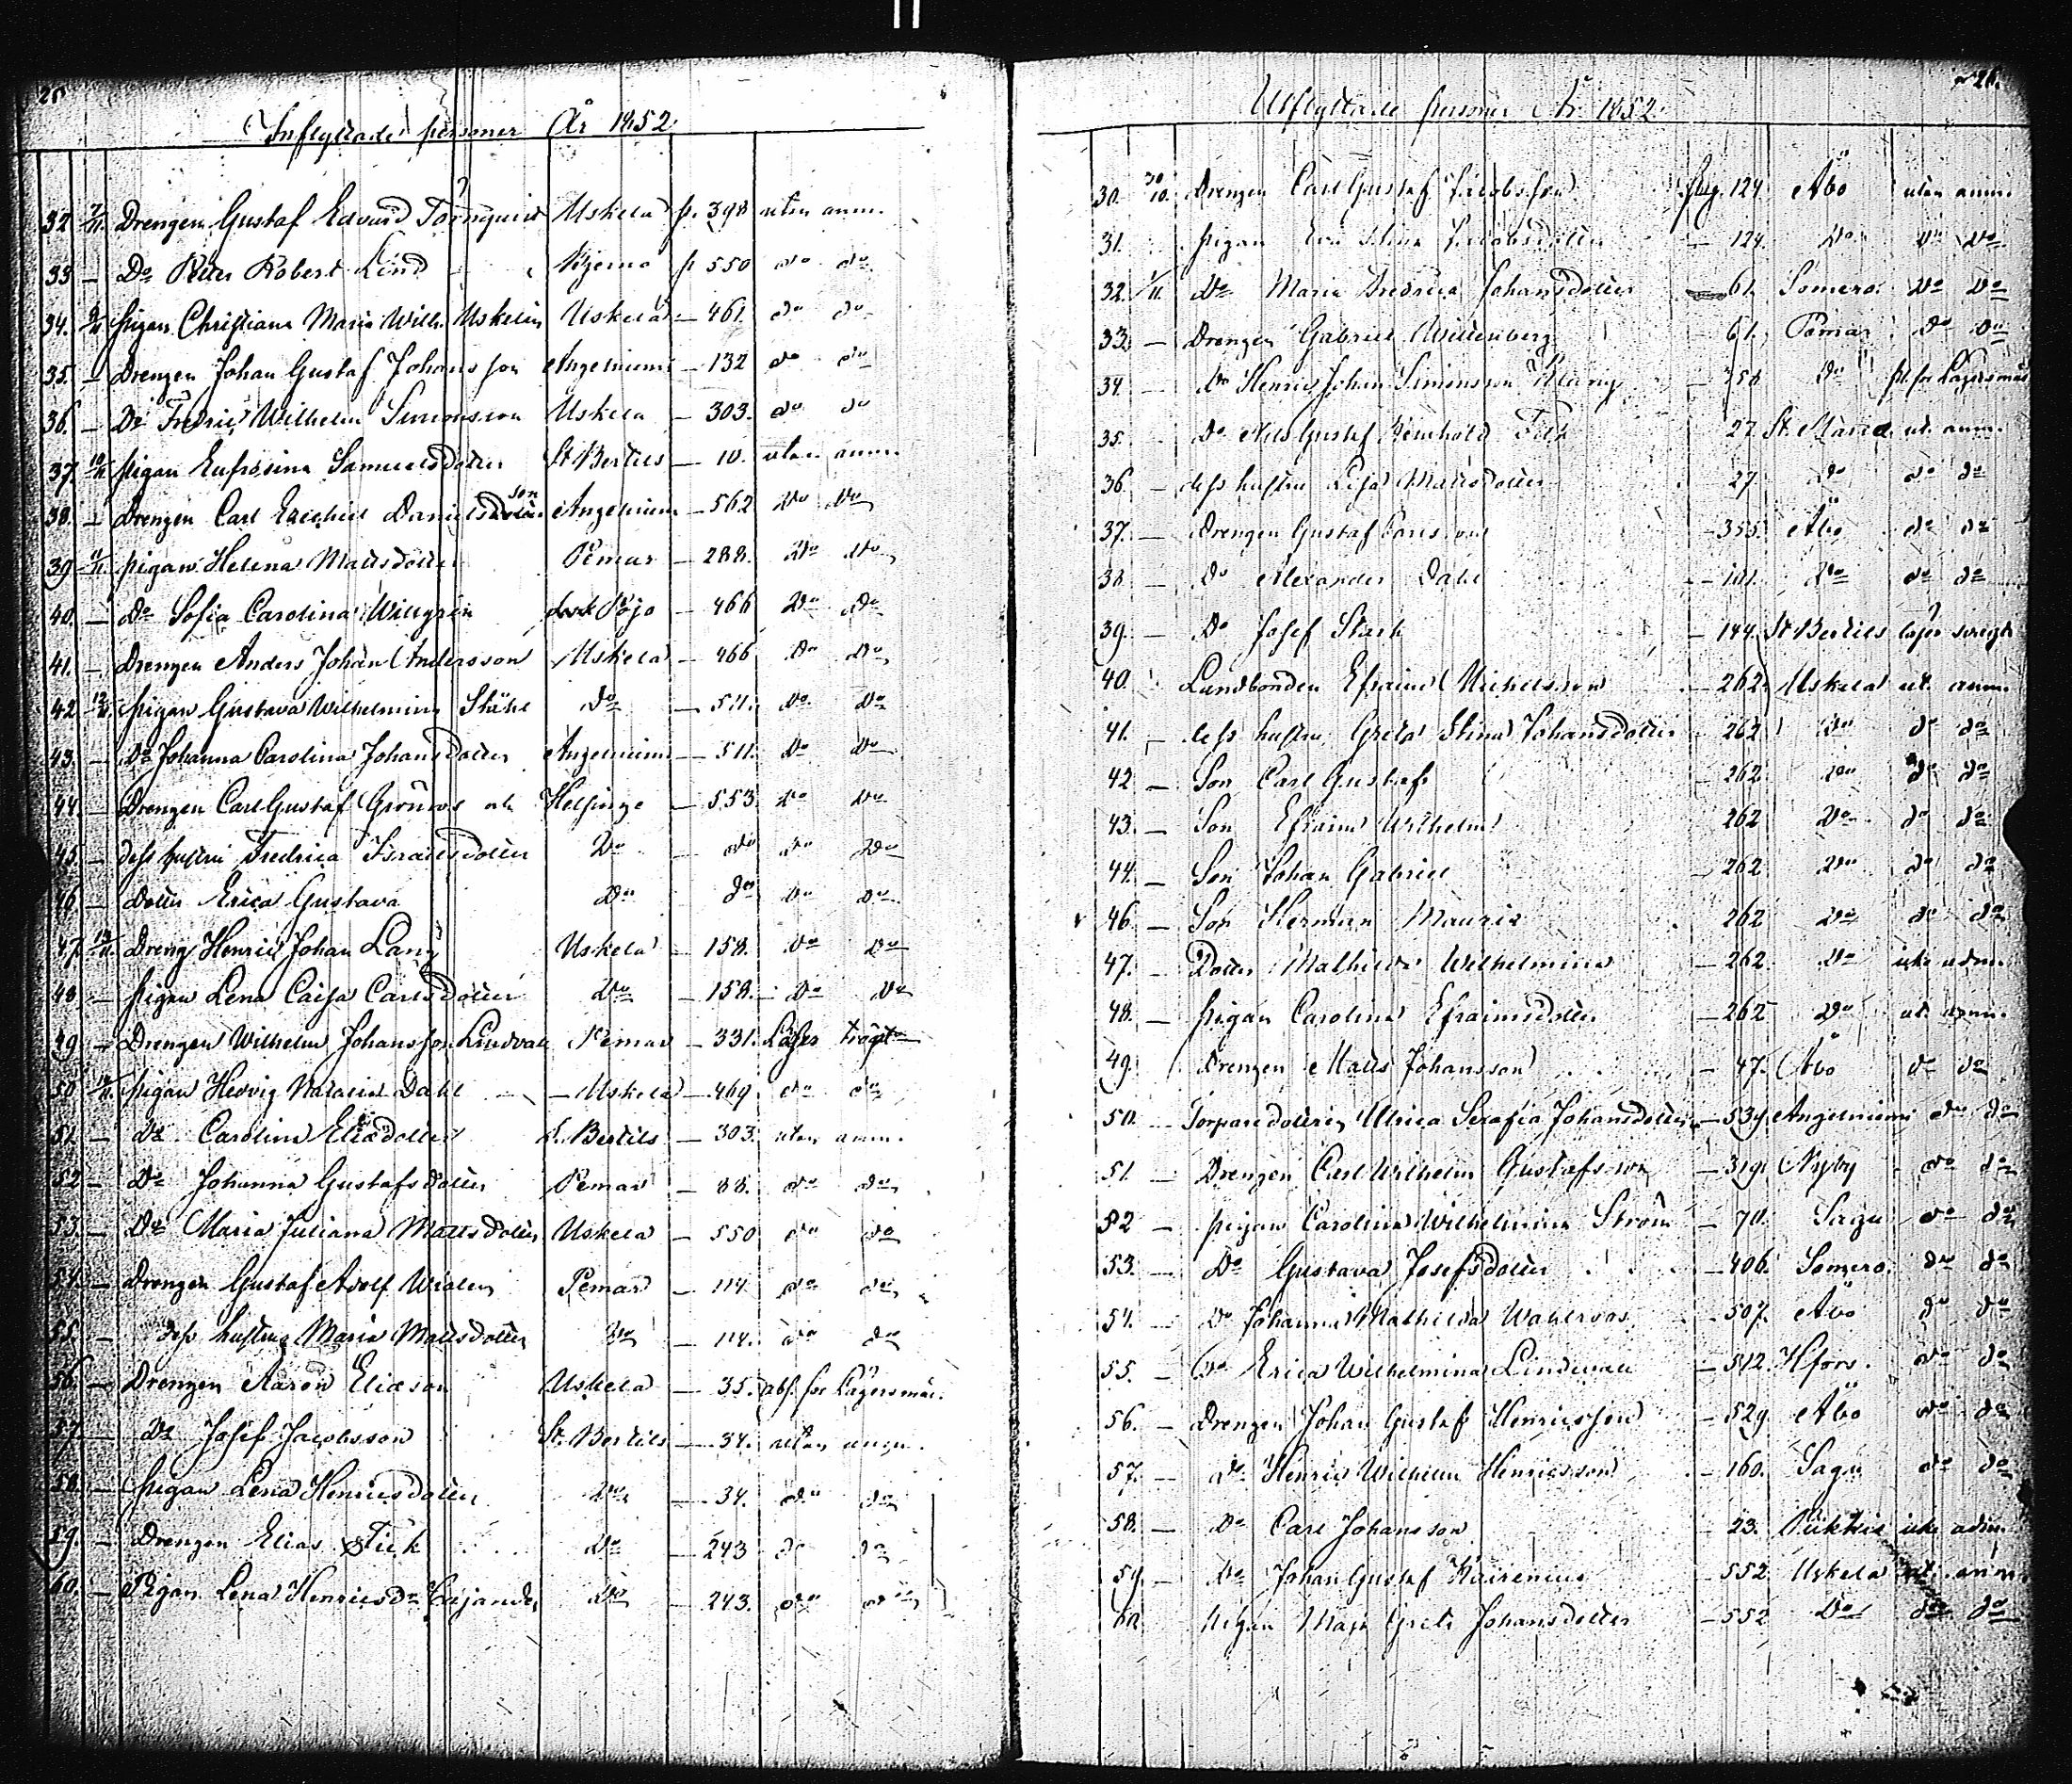 Inflyttade personer År 1852.
32. 7/11. Drengen Gustaf Edvard Törnqvist Uskela p. 398 utan anm.
33 — Do Peter Robert Lind Kjemo p 550 do do
34. 9/11 pigan Christiana Maria Wilh. Uskelin Uskela — 461. do do
35. — Drengen Johan Gustaf Johansson Angelniemi — 132 do do
36. — Do Fredric Wilhelm Simonsson Uskela — 303. do do
37. 10/11 pigan Eufrosina Samuelsdotter St Bertils — 10. utan anm.
38. — Drengen Carl Ezechiel Danielsson Angelniemi — 562 Do Do
39 11/11. pigan Helena Mattsdotter Pemar — 288. Do Do
40. — Do Sofia Carolina Willgrén Pojo — 466 Do Do
41. — Drengen Anders Johan Andersson Uskela — 466 Do Do
42 12/11. pigan Gustava Wilhelmina Ståhl Do — 511. Do Do
43. — Do Johanna Carolina Johansdotter Angelniemi — 511. Do Do
44. — Drengen Carl Gustaf Grönroos och Helsinge — 553 Do Do
45. — dess hustru Fredrica Israelsdotter Do — do Do Do
46. — Dotter Erica Gustava Do do Do Do
47. 13/11. Dreng Henric Johan Lang Uskela — 158. Do Do
48. — pigan Lena Caisa Carlsdotter Do — 158. Do Do
49 — Drengen Wilhelm Johansson Lindvall Pemar — 331. Läser trögt
50 14/11. pigan Hedvig Natalia Dahl — Uskela — 469 do do
51. — Do Carolina Eliædotter St. Bertils — 303. utan anm.
52 — Do Johanna Gustafsdotter Pemar — 88. do do
53. — Do Maria Juliana Mattsdotter Uskela — 550 do do
54. — Drengen Gustaf Adolf Widlen Pemar — 114 do do
55 — dess hustru Maria Mattsdotter Do — 114. do do
56. — Drengen Aaron Eliæson Uskela — 35. abs. för Lägersmål.
57. — Do Josef Jacobsson St. Bertils — 34. utan anm.
58. — pigan Lena Henricsdotter Do — 34. do do
59. — Drengen Elias Fick Do — 243 do do
60. — Pigan Lena Henricsdr Cajander Do — 243. do do
26.
Utflyttade personer År 1852.
30. 30/10. Drengen Carl Gustaf Jacobsson pag. 124. Åbo utan anm.
31. pigan Eva Stina Jacobsdotter — 124. Do Do Do
32. 1/11. Do Maria Fredrica Johansdotter 61. Somero. Do Do
33. — Drengen Gabriel Willenberg 61. Pemar Do Do
34. — Do Henric Johan Simonsson Klang — 758 Do för Lägersmål
35. Do Nils Gustaf Reinhold 27 St. Marie ut. anm.
36. — dess hustru Lisa Mattsdotter 27 do do do
37. — Drengen Gustaf Carlsson — 355. Åbo do do
38. — Do Alexander Dahl — 101. Do do do
39. — Do Josef Stark — 144. St Bertils läser svagt
40. Landbonden Efraim Michelsson — 262. Uskela ut. anm.
41. — dess hustru Greta Stina Johansdotter — 262 Do do do
42 — Son Carl Gustaf — 262 Do do do
43. — Son Efraim Wilhelm 262 Do do do
44. — Son Johan Gabriel — 262 Do do do
46. — Son Herman Mauriz 262 Do do do
47. — Dotter Mathilda Wilhelmina — 262 Do icke adm.
48. — pigan Carolina Efraimsdotter — 262 Do ut. anm.
49. Drengen Matts Johansson — 47. Åbo do do
50. — Torparedottern Ulrica Serafia Johansdotter — 539 Angelniemi do do
51. — Drengen Carl Wilhelm Gustafsson — 319 Nyby do do
52 — pigan Carolina Wilhelmina Ström — 70. Sagu do do
53. — Do Gustava Josefsdotter — 406. Somero. do do
54. — Do Johanna Mathilda Wahlroos — 507. Åbo do do
55. — Do Erica Wilhelmina Lindwall — 512. Hfors. do do
56. — Drengen Johan Gustaf Henricsson — 529 Åbo do do
57. — Do Henric Wilhelm Henricsson — 160. Sagu do do
58. — Do Carl Johansson — 23. Piikkie icke adm.
59. — Do Johan Gustaf Kairenius — 552. Uskela ut. anm.
60. pigan Maja Greta Johansdotter — 552 Do do do